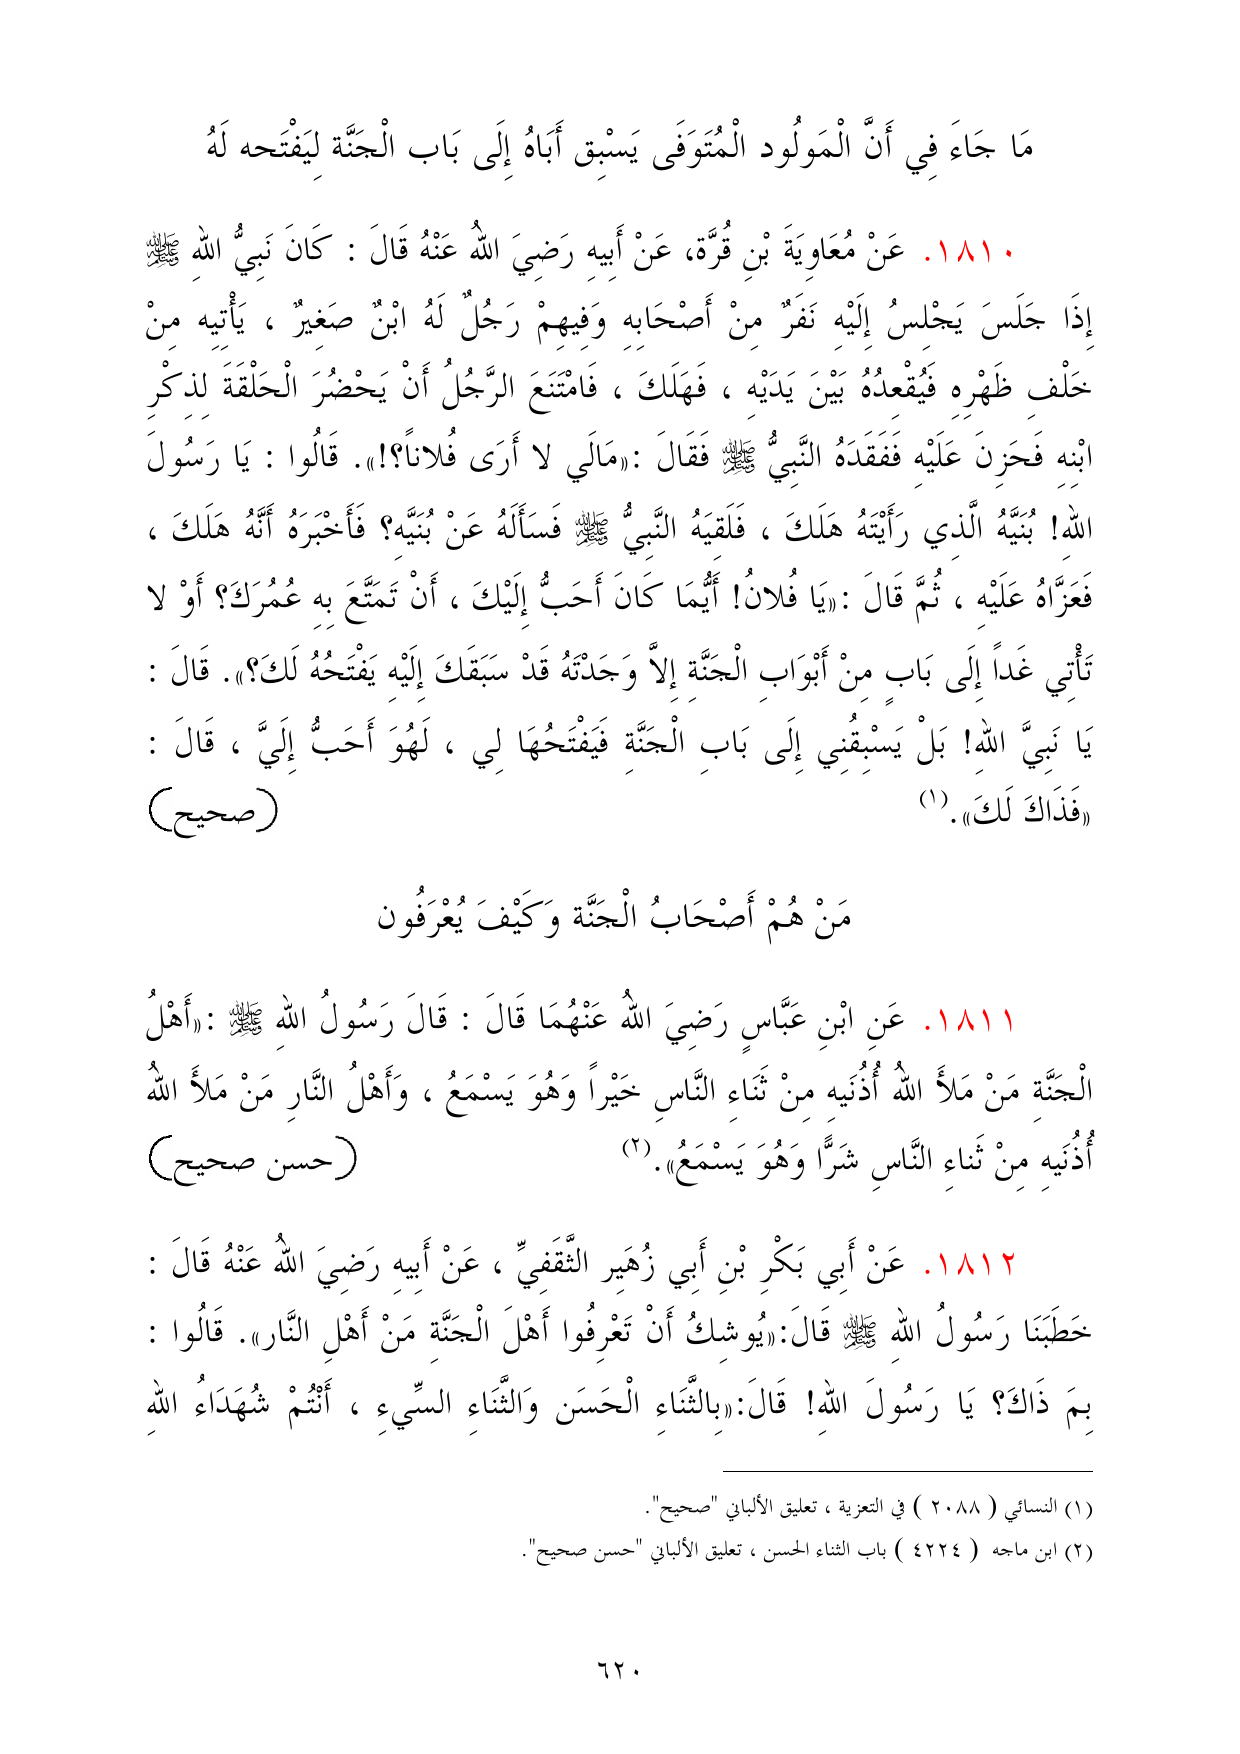 مَا جَاءَ فِي أَنَّ الْمَولُود الْمُتَوَفَى يَسْبِق أَبَاهُ إِلَى بَاب الْجَنَّة لِيَفْتَحه لَهُ
١٨١٠. عَنْ مُعَاوِيَةَ بْنِ قُرَّة، عَنْ أَبِيهِ رَضِيَ اللهُ عَنْهُ قَالَ : كَانَ نَبِيُّ اللهِ ﷺ
إِذَا جَلَسَ يَجْلِسُ إِلَيْهِ نَفَرٌ مِنْ أَصْحَابِهِ وَفِيهِمْ رَجُلٌ لَهُ ابْنٌ صَغِيرٌ ، يَأْتِيهِ مِنْ
خَلْفِ ظَهْرِهِ فَيُقْعِدُهُ بَيْنَ يَدَيْهِ ، فَهَلَكَ ، فَامْتَنَعَ الرَّجُلُ أَنْ يَحْضُرَ الْحَلْقَةَ لِذِكْرِ
ابْنِهِ فَحَزِنَ عَلَيْهِ فَفَقَدَهُ النَّبِيُّ ﷺ فَقَالَ :«مَالَي لا أَرَى فُلاناً؟!». قَالُوا : يَا رَسُولَ
اللهِ! بُنَيَّهُ الَّذِي رَأَيْتَهُ هَلَكَ ، فَلَقِيَهُ النَّبِيُّ ﷺ فَسَأَلَهُ عَنْ بُنَيَّهِ؟ فَأَخْبَرَهُ أَنَّهُ هَلَكَ ،
فَعَزَّاهُ عَلَيْهِ ، ثُمَّ قَالَ :«يَا فُلانُ! أَيُّمَا كَانَ أَحَبُّ إِلَيْكَ ، أَنْ تَمَتَّعَ بِهِ عُمُرَكَ؟ أَوْ لا
تَأْتِي غَداً إِلَى بَابٍ مِنْ أَبْوَابِ الْجَنَّةِ إِلاَّ وَجَدْتَهُ قَدْ سَبَقَكَ إِلَيْهِ يَفْتَحُهُ لَكَ؟». قَالَ :
يَا نَبِيَّ اللهِ! بَلْ يَسْبِقُنِي إِلَى بَابِ الْجَنَّةِ فَيَفْتَحُهَا لِي ، لَهُوَ أَحَبُّ إِلَيَّ ، قَالَ :
«فَذَاكَ لَكَ».(١) (صحيح)
مَنْ هُمْ أَصْحَابُ الْجَنَّة وَكَيْفَ يُعْرَفُون
١٨١١. عَنِ ابْنِ عَبَّاسٍ رَضِيَ اللهُ عَنْهُمَا قَالَ : قَالَ رَسُولُ اللهِ ﷺ :«أَهْلُ
الْجَنَّةِ مَنْ مَلأَ اللهُ أُذُنَيهِ مِنْ ثَنَاءِ النَّاسِ خَيْراً وَهُوَ يَسْمَعُ ، وَأَهْلُ النَّارِ مَنْ مَلأَ اللهُ
أُذُنَيهِ مِنْ ثَناءِ النَّاسِ شَرًّا وَهُوَ يَسْمَعُ».(٢) (حسن صحيح)
١٨١٢. عَنْ أَبِي بَكْرِ بْنِ أَبِي زُهَيرِ الثَّقَفِيِّ ، عَنْ أَبِيهِ رَضِيَ اللهُ عَنْهُ قَالَ :
خَطَبَنَا رَسُولُ اللهِ ﷺ قَالَ:«يُوشِكُ أَنْ تَعْرِفُوا أَهْلَ الْجَنَّةِ مَنْ أَهْلِ النَّار». قَالُوا :
بِمَ ذَاكَ؟ يَا رَسُولَ اللهِ! قَالَ:«بِالثَّنَاءِ الْحَسَن وَالثَّنَاءِ السِّيءِ ، أَنْتُمْ شُهَدَاءُ اللهِ
(١) النسائي ( ٢٠٨٨ ) في التعزية ، تعليق الألباني "صحيح".
(٢) ابن ماجه ( ٤٢٢٤ ) باب الثناء الحسن ، تعليق الألباني "حسن صحيح".
٦٢٠